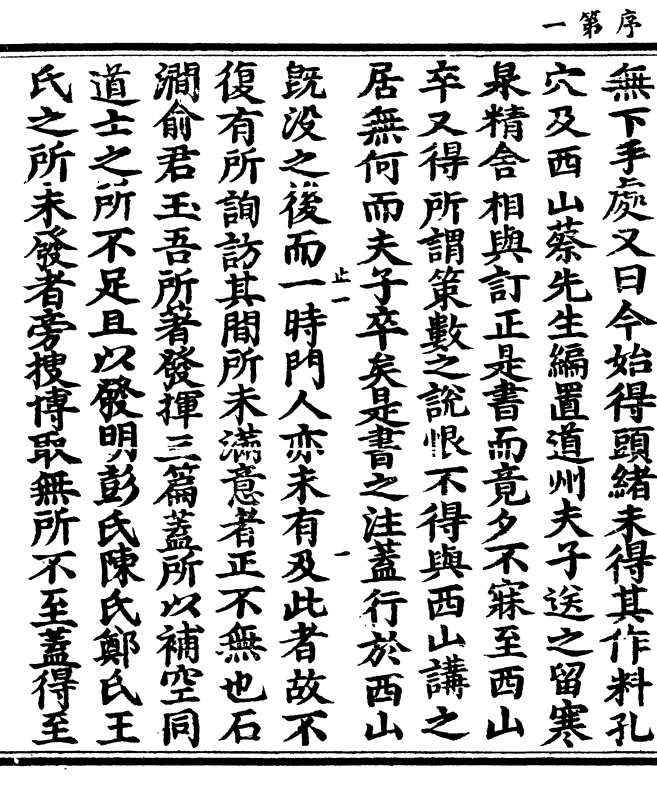 序第一
無下手處又曰今始得頭緒未得其作料孔
穴及西山蔡先生編置道州夫子送之留寒
泉精舍相與訂正是書而竟夕不寐至西山
卒又得所謂策數之說恨不得與西山講之
居無何而夫子卒矣是書之注蓋行於西山
止一
既没之後而一時門人亦未有及此者故不
一
復有所詢訪其間所未滿意者正不無也石
澗俞君玉吾所著發揮三篇蓋所以補空同
道士之所不足且以發明彭氏陳氏鄭氏王
氏之所未發者旁搜博取無所不至蓋得至